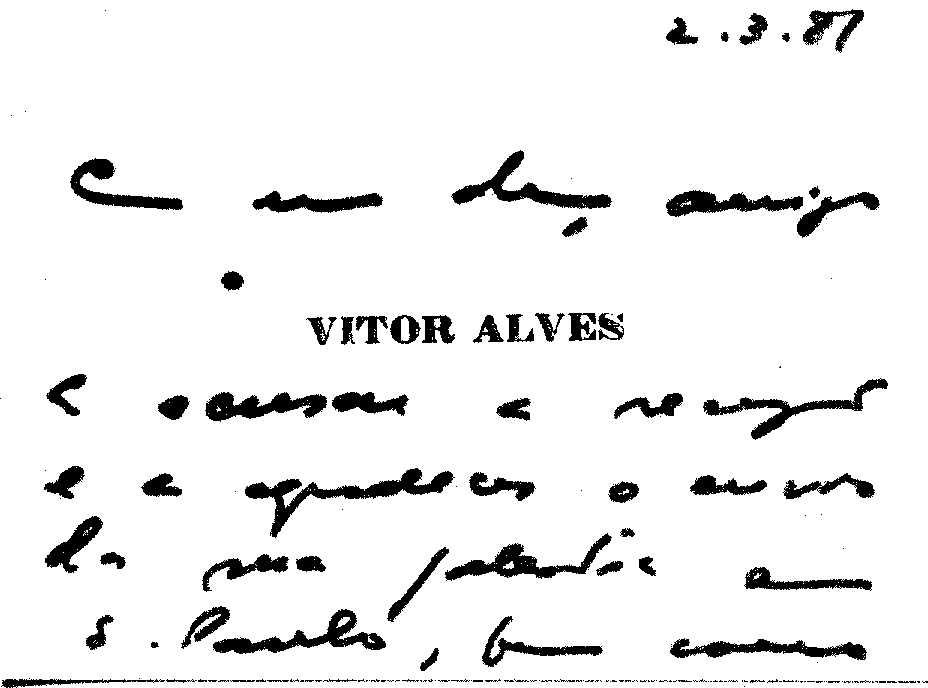 2.3.87
Com um abç. amigo
VITOR ALVES
a acusar a recepç
e a agradecer o envio
da sua palestra em
S. Paulo, bem como